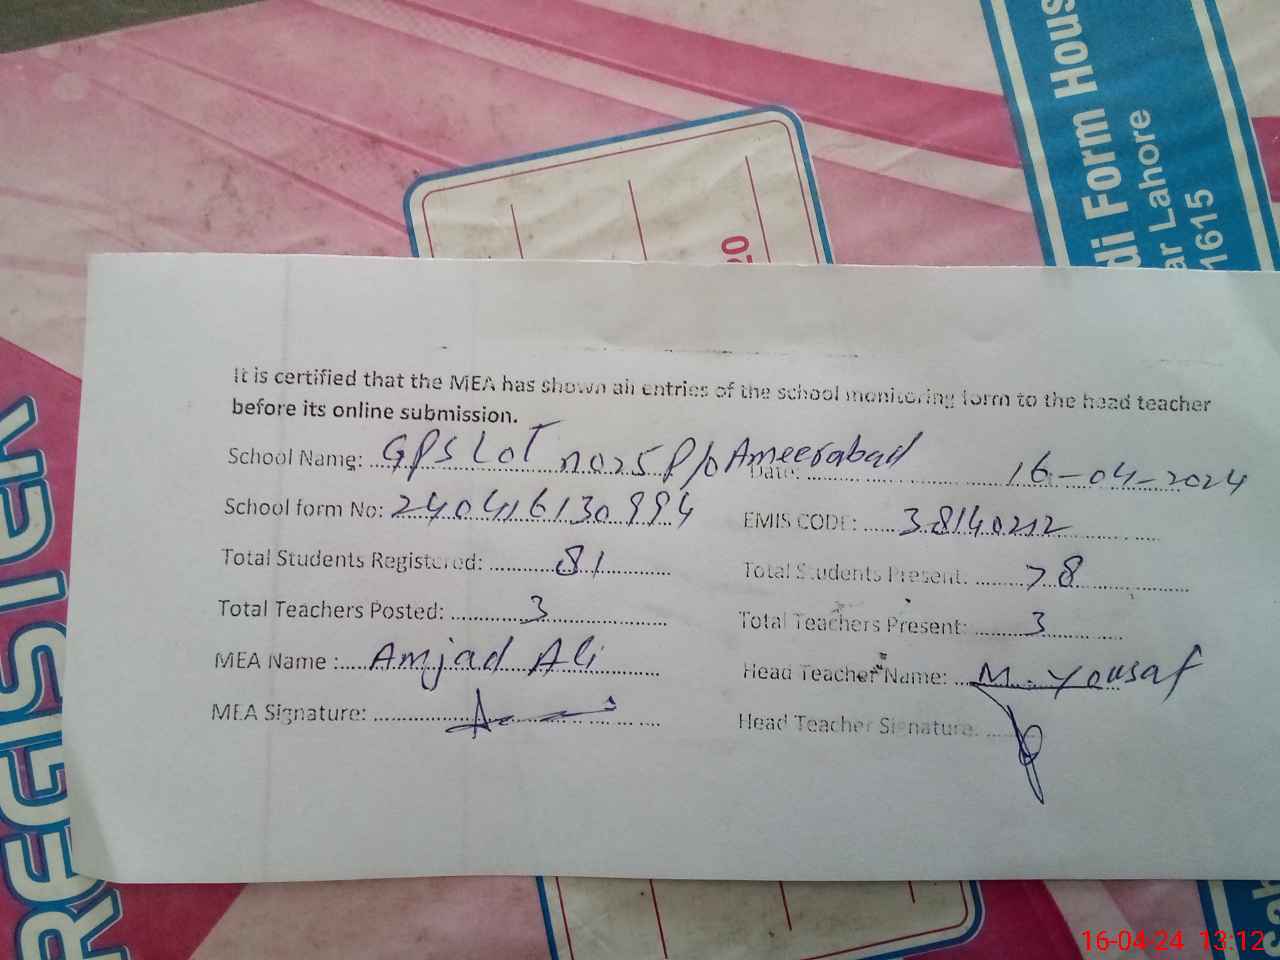 di Form Hous
ar Lahore
1615
20
It is certified that the MEA has shown all entries of the school monitoring form to the head teacher
before its online submission.
School Name: GPS Lot no 25 P/o Ameerabad Date: 16-04-2024
School form No: 240416130994 EMIS CODE: 38140212
Total Students Registered: 81 Total Students Present: 78
Total Teachers Posted: 3 Total Teachers Present: 3
MEA Name: Amjad Ali Head Teacher Name: M. Yousaf
MEA Signature: Head Teacher Signature:
REGISTER
16-04-24 13:12